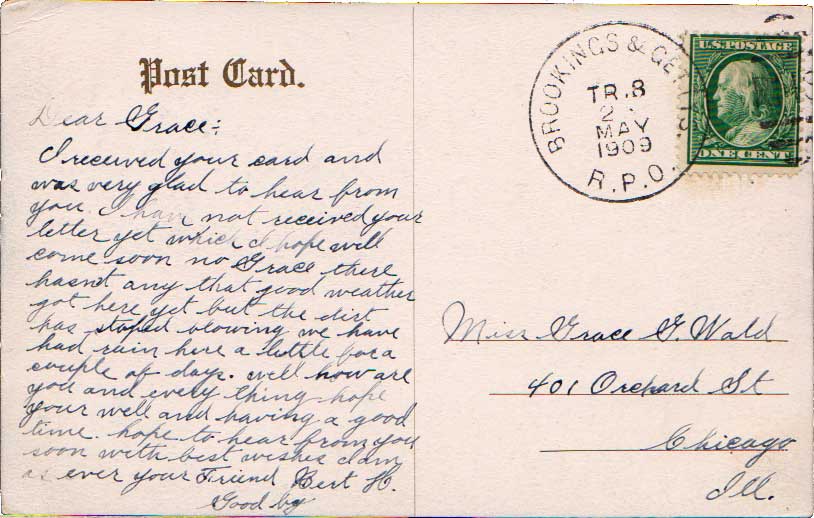 Post Card.
Dear Grace:
I received your card and
was very glad to hear from
you. I have not received your
letter yet which I hope will
come soon no Grace there
hasnt any that good weather
got here yet but the dirt
has stoped blowing we have
had rain here a little for a
couple of days. well how are
you and every thing hope
your well and having a good
time. hope to hear from you
soon with best wishes I am
as ever your Friend Bert H.
Good by
BROOKINGS & GETTYS
TR.8
2
MAY
1909
R.P.O.
U.S. POSTAGE
ONE CENT
Miss Grace G. Wald
401 Orchard St
Chicago
Ill.